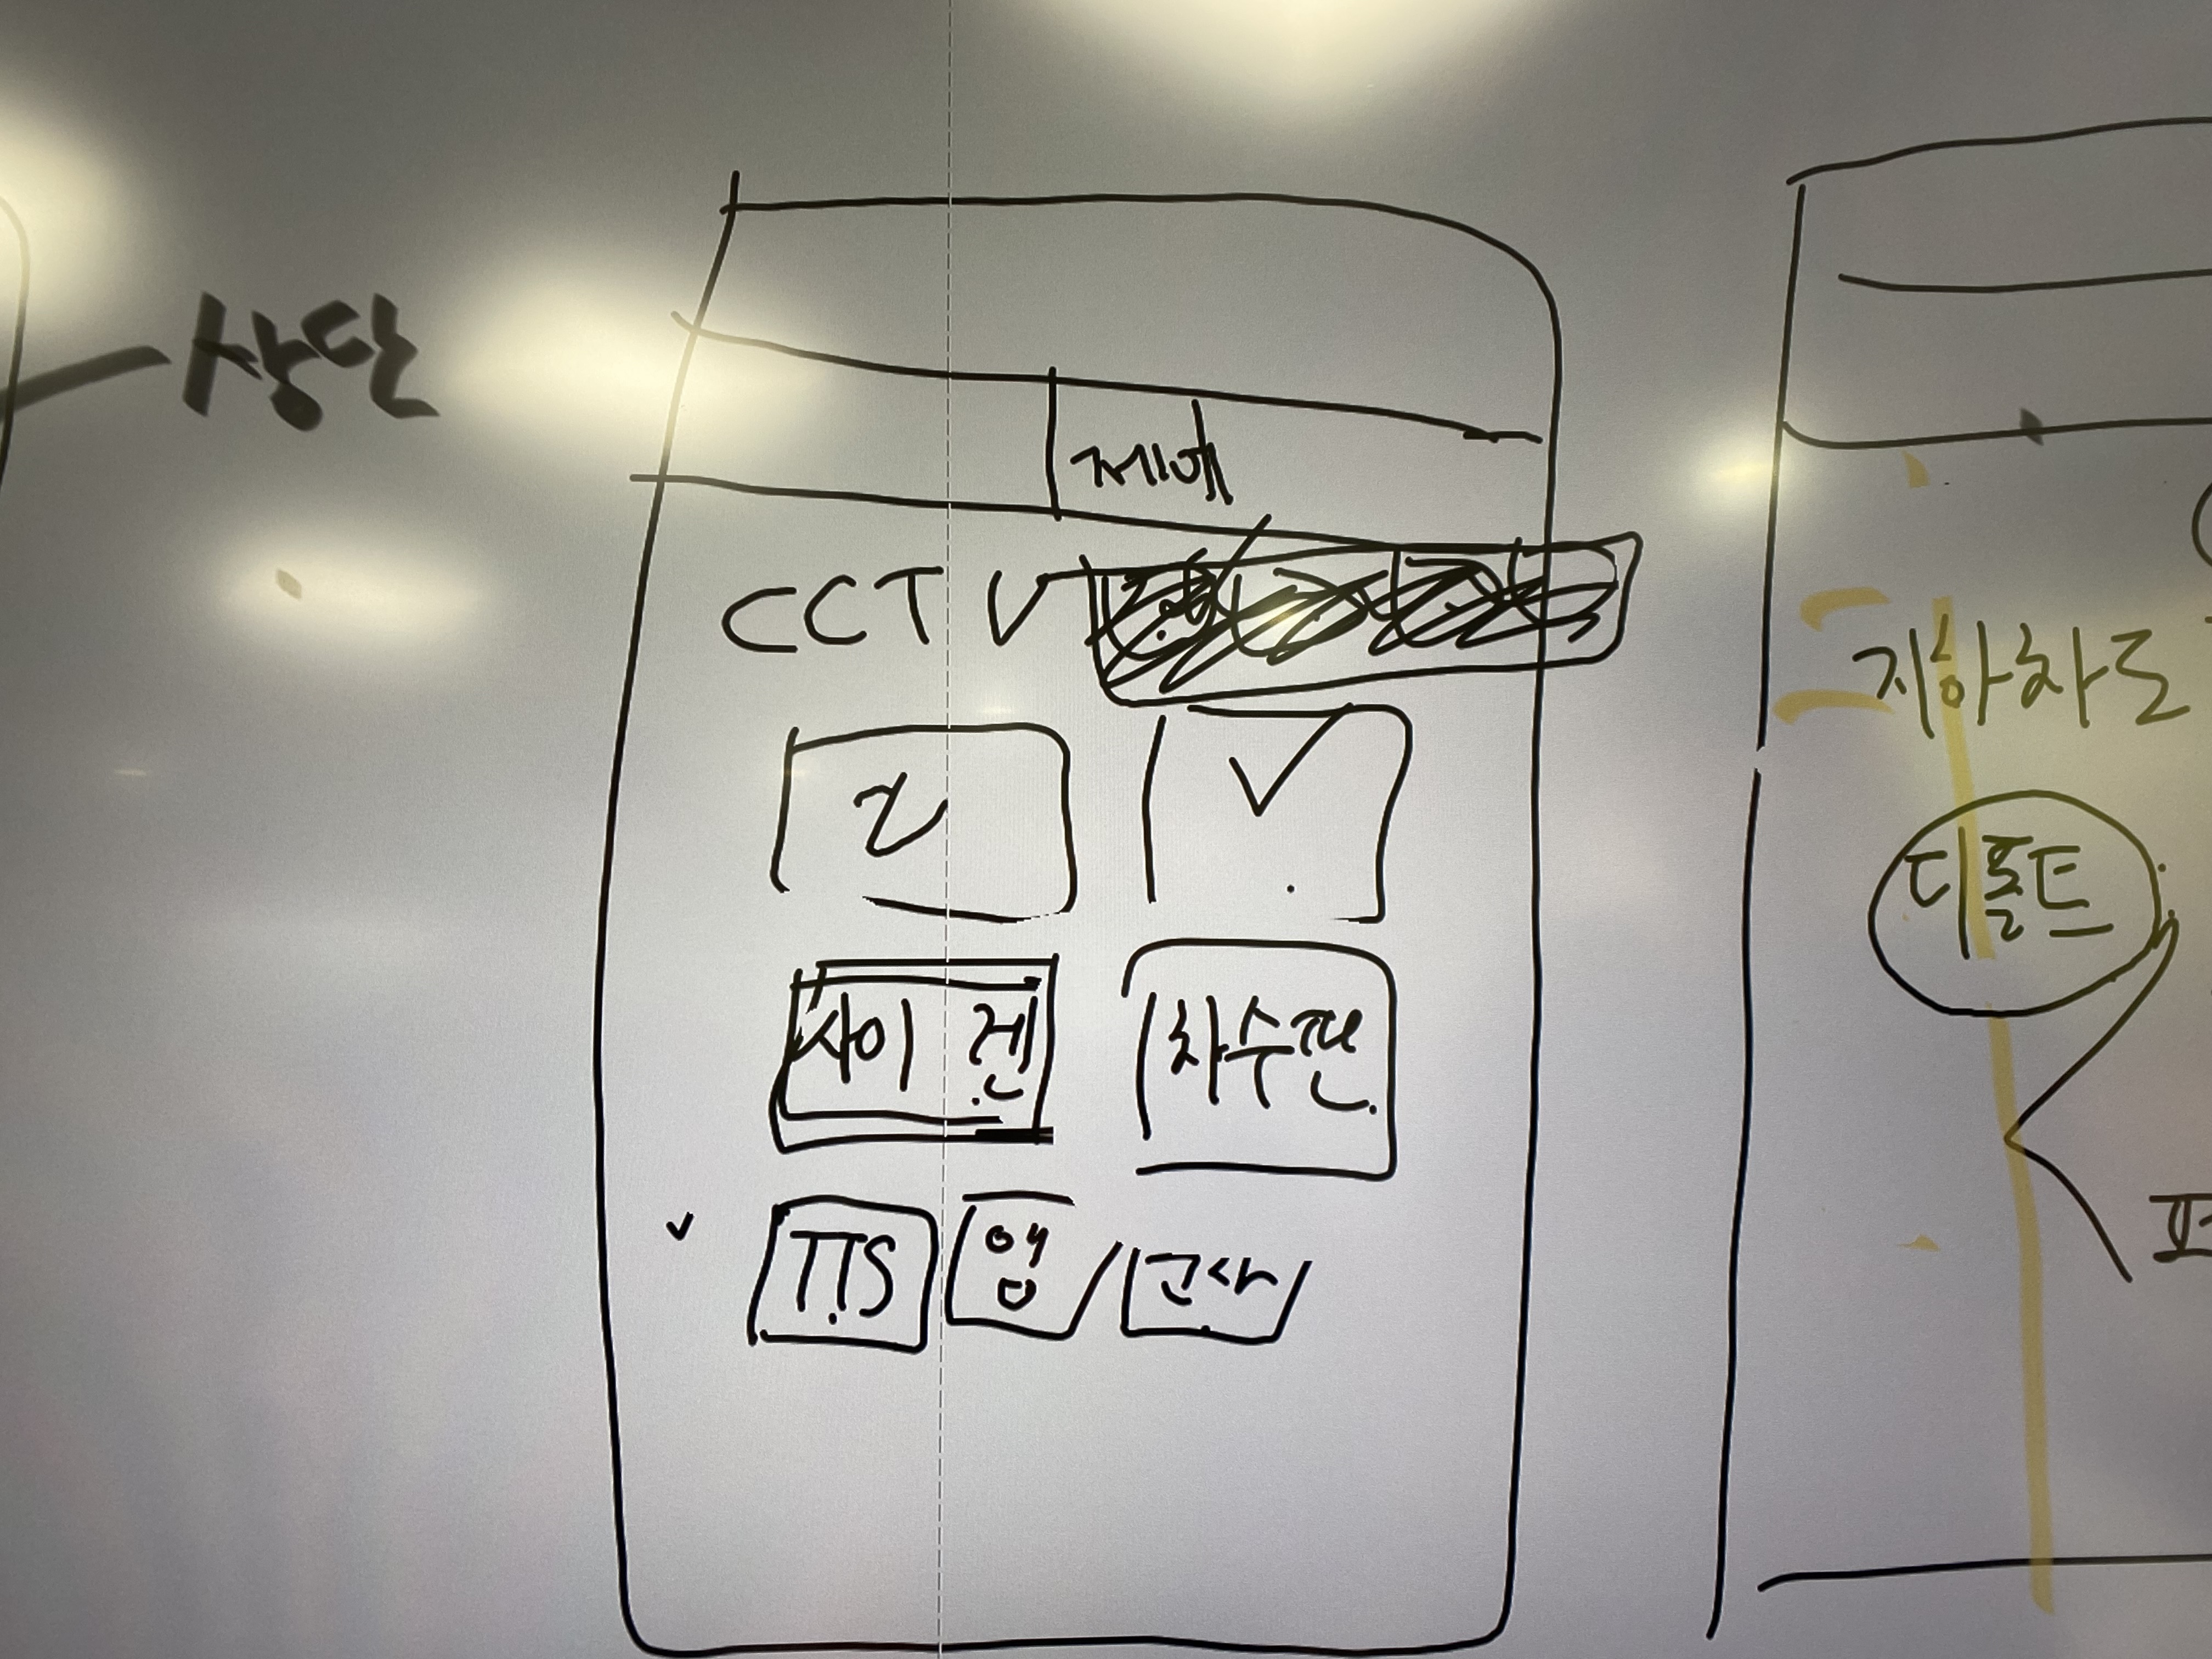 상단
제어
CCTV
사이렌
차수판
TTS
앰
방사
지하차도
디폴트